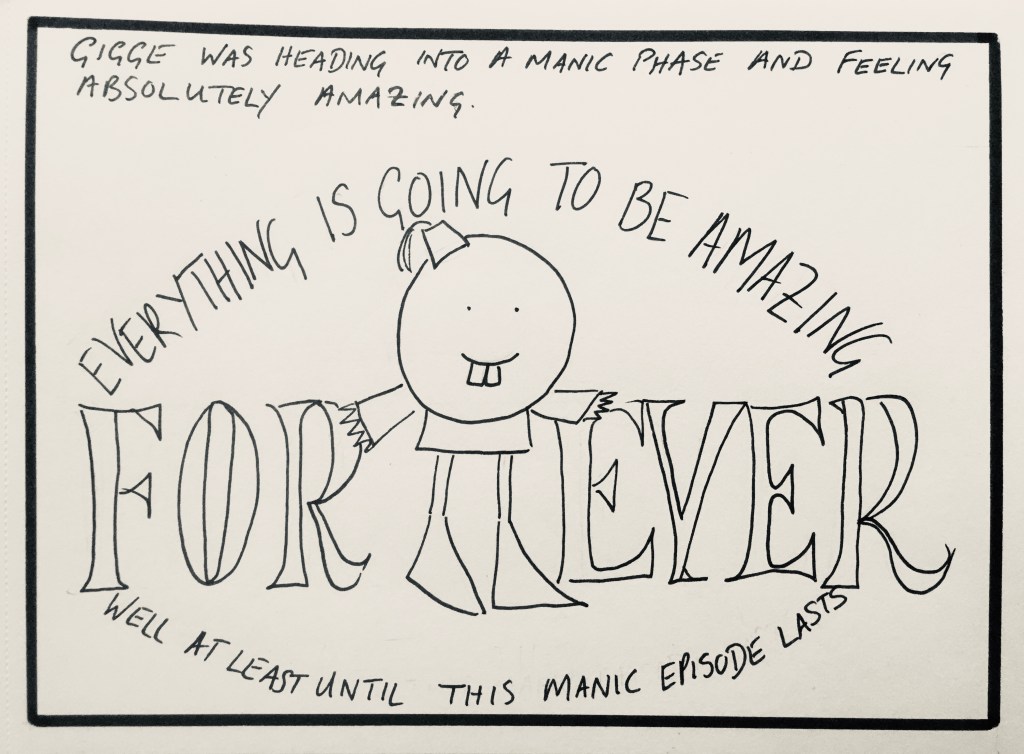 GIGGE WAS HEADING INTO A MANIC PHASE AND FEELING
ABSOLUTELY AMAZING.
EVERYTHING IS GOING TO BE AMAZING
FOREVER
WELL AT LEAST UNTIL THIS MANIC EPISODE LASTS